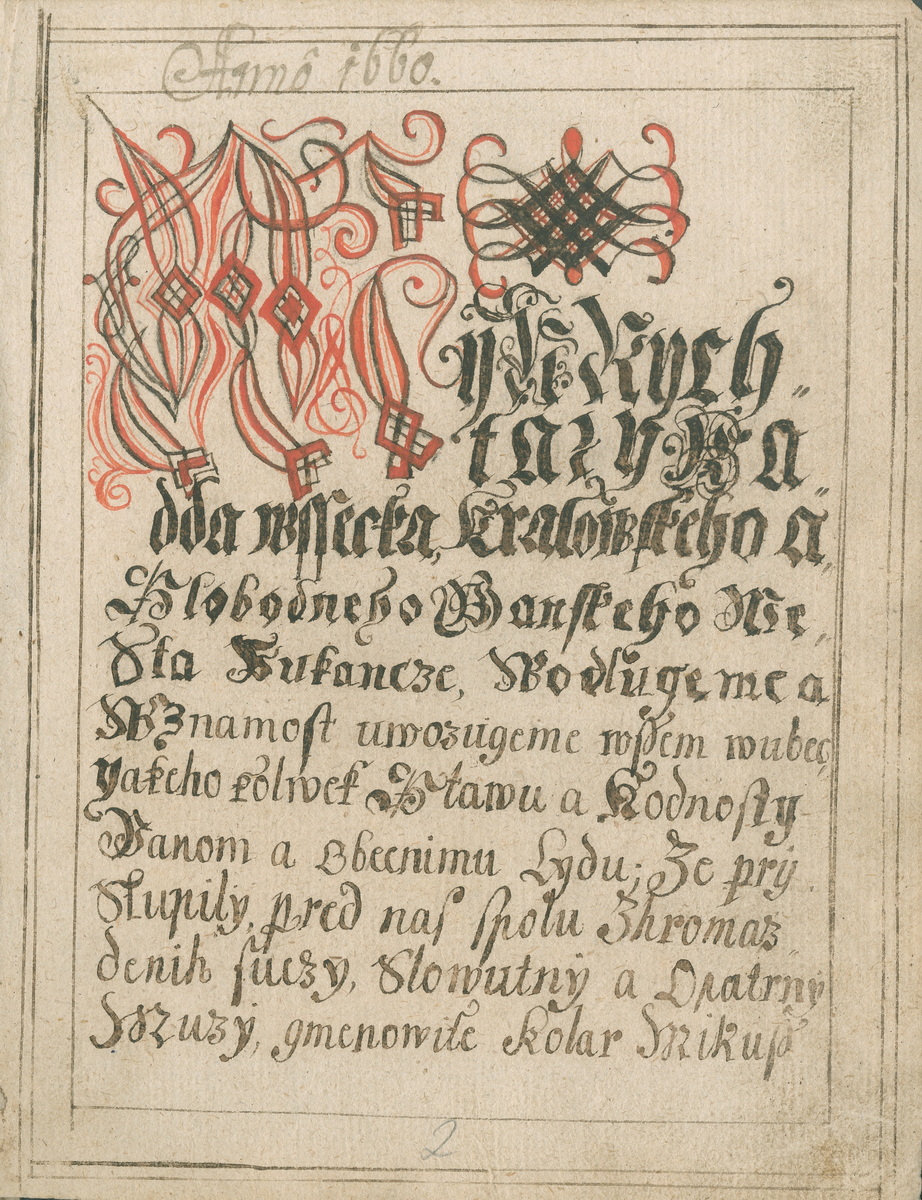 Anno 1660.
My N Rych„
tarz y Ra„
dda wssecka, Kralowskeho a„
Slobodneho Banskeho Me„
Sta Bukancze, Wodlugeme a
W Znamost uwozugeme wssem wubec,
yakeho kolwek Stawu a Hodnosty
Panom a Obecnimu Lydu; Ze pry
Stupily, pred nas spolu Zhromaz„
denih suczy, Slowutny a Opatrny
Muzy, gmenowite Kolar Mikuss
2